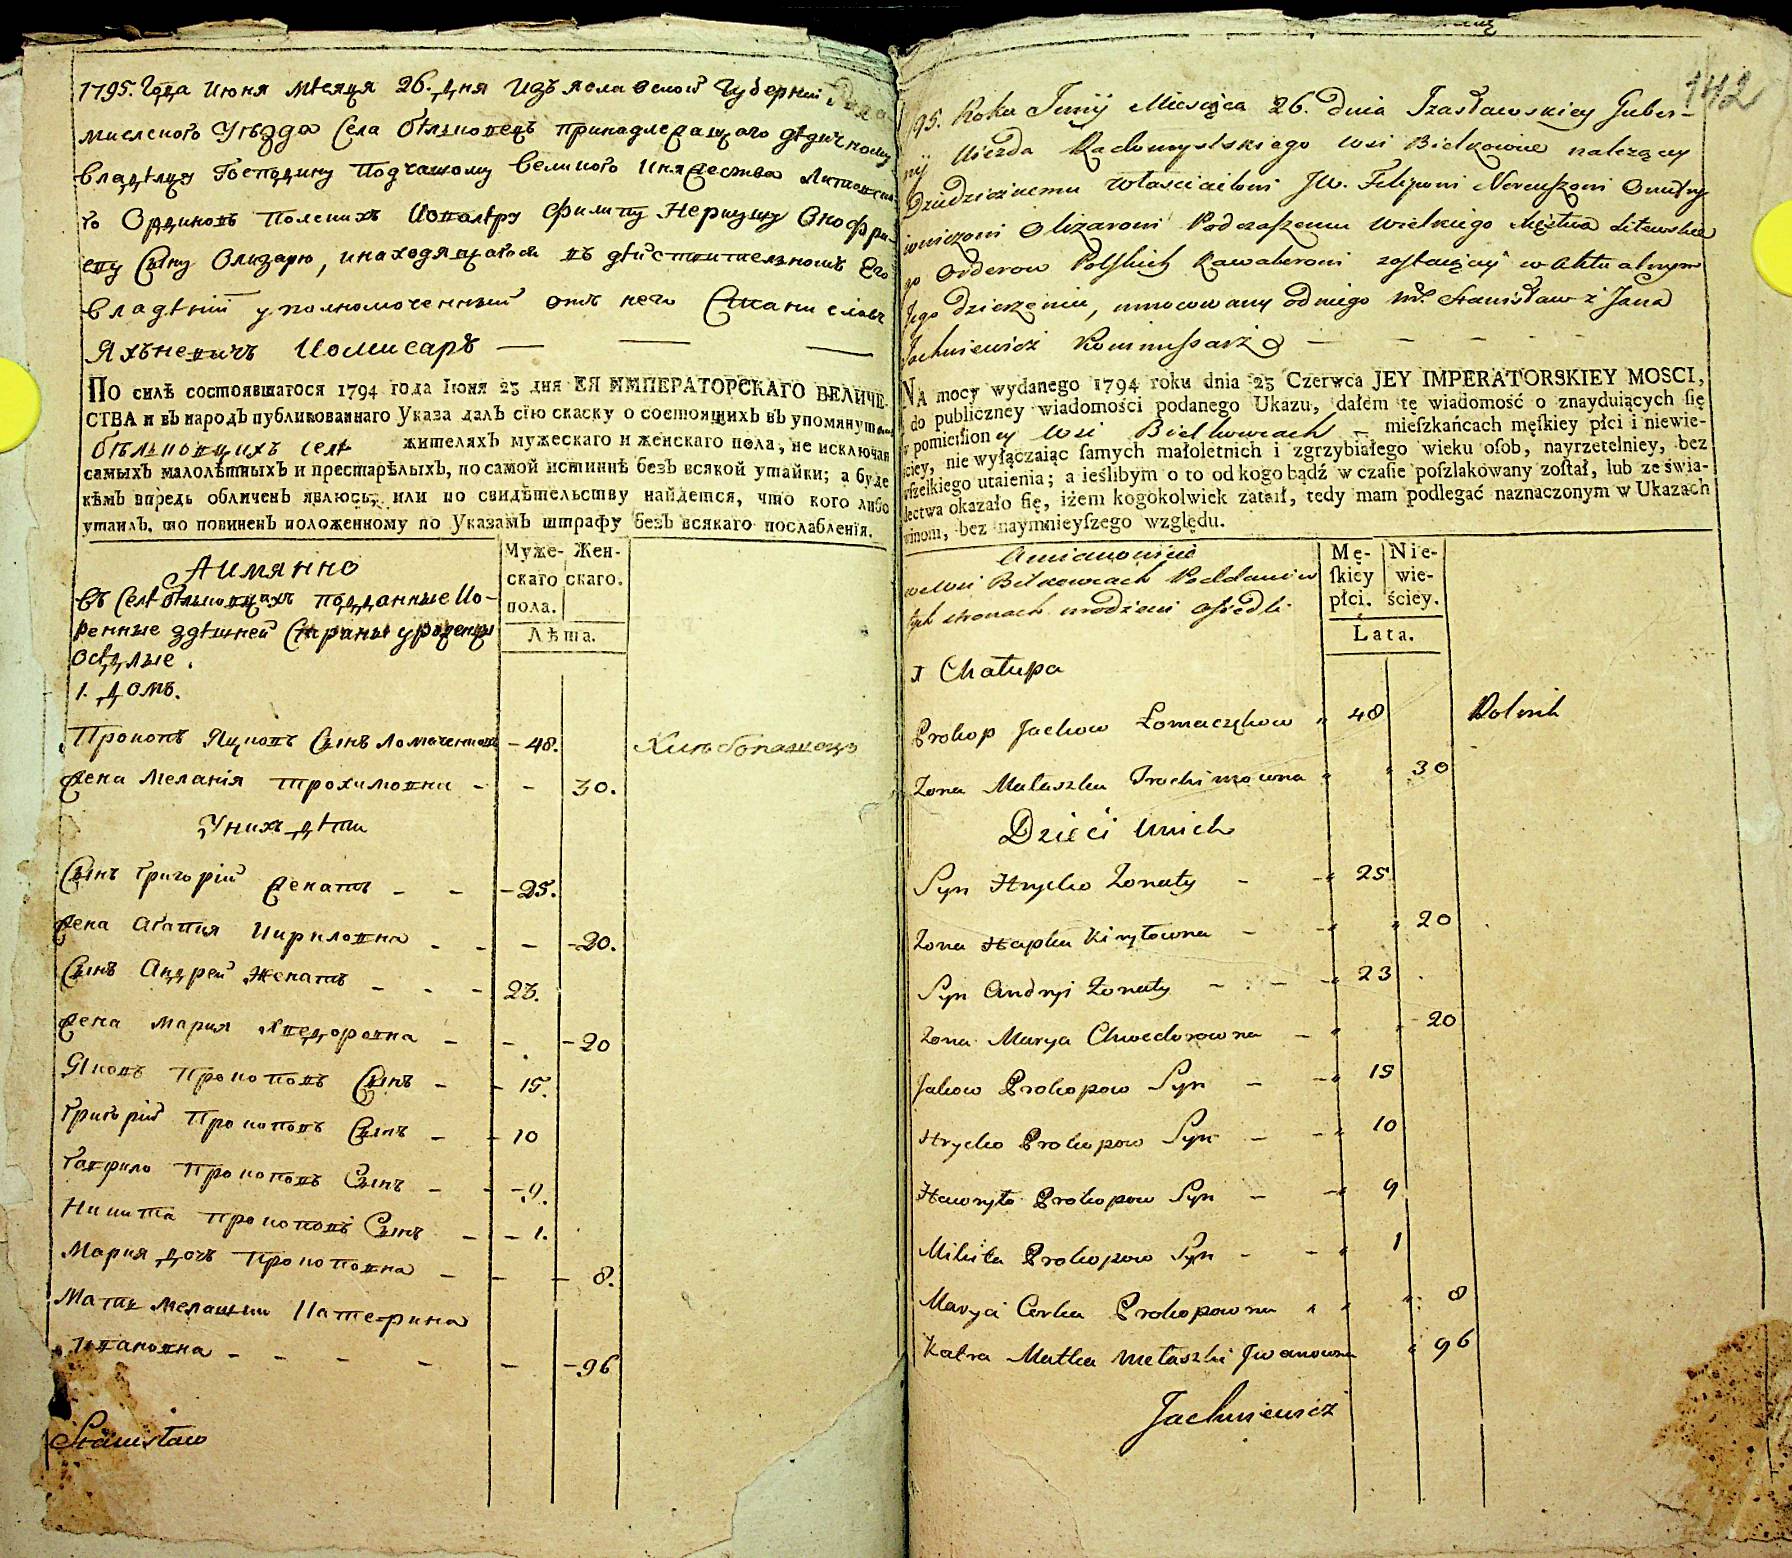 1795. Года Июня мѣсяца 26. дня Изъяславской Губерніи
мысленого Уѣзда Села Бѣлковецъ принадлежащаго дѣдичному
владѣлцу Господину Подчашому великого Княжества Литовска-
го Ординовъ Полскихъ Ковалѣру Филипу Нериушу Онофри-
еву Сыну Олизару, и находящагося въ дѣйствителномъ Его
владѣніи уполномоченный отъ него Станиславъ
Яхъневичъ Комисаръ
ПО силѣ состоявшагося 1794 года Іюня 23 дня ЕЯ ИМПЕРАТОРСКАГО ВЕЛИЧЕ-
СТВА и въ народъ публикованнаго Указа далъ сїю скаску о состоящихъ въ упомянутомъ
бѣлковцихъ селѣ жителяхъ мужескаго и женскаго пола, не исключая
самыхъ малолѣтныхъ и престарѣлыхъ, по самой истиннѣ безъ всякой утайки; а буде
кѣмъ впредь обличенъ явлюсь, или по свидѣтельству найдется, что кого либо
утаилъ, то повиненъ положенному по Указамъ штрафу безъ всякаго послабленїя.
Муже- Жен-
Аимянно
скаго скаго.
въ Селѣ бѣлковцахъ подданные Ко-
пола.
ренные здѣшней Страны уроженцы
Лѣта.
осѣдлые.
1. домъ.
Прокопъ Яцковъ Сынъ Ломаченковъ - 48. Хлѣбопашецъ
Жена Меланія Трохимовна - - 30.
У нихъ дѣти
Сынъ Григорій Женатъ - - - 25.
Жена Агапия Кириловна - - - - 20.
Сынъ Андрей Женатъ - - - 23.
Жена Мария Хведоровна - - - 20
Яковъ Прокоповъ Сынъ - - 15.
Григорій Прокоповъ Сынъ - - 10
Гаврило Прокоповъ Сынъ - - - 9.
Никита Прокоповъ Сынъ - - 1.
Мария дочь Прокоповна - - - 8.
Мать Мелашки Катерина
Ивановна - - - - - - 96
Stanisław
142
95. Roku Junij Miesiąca 26. dnia Izasławskiey Guber-
nij Uiezda Radomyslskiego wsi Bielkowiec należący
Dziedzicznemu Właścicielowi JW. Filipowi Nereuszowi Onufry
iewiczowi Olizarowi Podczaszemu Wielkiego Xięstwa Litewskie
go Orderow Polskich Kawalerowi zostaiącey w Aktualnym
Jego dzierżeniu, umocowany od niego Stanisław z Jana
Jachniewicz Kommissarz
NA mocy wydanego 1794 roku dnia 23 Czerwca JEY IMPERATORSKIEY MOSCI,
i do publiczney wiadomości podanego Ukazu, dałem tę wiadomość o znayduiących ſię
w pomieſſioney Wsi Bielkowcach - mieſzkańcach męſkiey płci i niewie-
ściey, nie wyłączaiąc ſamych małoletnich i zgrzybiałego wieku oſob, nayrzetelniey, bez
wſzelkiego utaienia; a ieślibym o to od kogo bądź w czaſie poſzlakowany zoſtał, lub ze świa-
dectwa okazało ſię, iżem kogokolwiek zataił, tedy mam podlegać naznaczonym w Ukazach
winom, bez naymnieyſzego względu.
Amianowicie
Mę- Nie-
we Wsi Bilkowcach Poddani w
ſkiey wie-
tych stronach urodzeni osiedli
płci. ściey.
Lata.
1 Chałupa
Prokop Jackow Łomaczękow 48 Rolnik
Zona Małaszka Trochimowna 30
Dzieci unich
Syn Hrycko Zonaty - - 25
Zona Hapka Kiryłowna - - 20
Syn Andryi Zonaty - - - 23
Zona Marya Chwedorowna - - 20
Jakow Prokopow Syn - - 15
Hrycko Prokopow Syn - - 10
Hawryło Prokopow Syn - - 9
Mikita Prokopow Syn - - 1
Marya Corka Prokopowna 8
Katra Matka Mełaszki Jwanowna 96
Jachniewicz